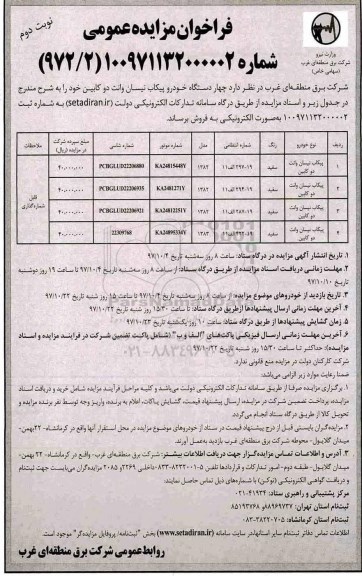 نوبت دوم
فراخوان مزایده عمومی
شماره ۱۰۰۹۷۱۱۳۲۰۰۰۰۰۲ (۹۷۲/۲)
وزارت نیرو
شرکت برق منطقه‌ای غرب
(سهامی خاص)
شرکت برق منطقه‌ای غرب در نظر دارد چهار دستگاه خودرو پیکاب نیسان وانت دو کابین خود را به شرح مندرج
در جدول زیر و اسناد مزایده از طریق درگاه سامانه تدارکات الکترونیکی دولت (setadiran.ir) به شماره ثبت
۱۰۰۹۷۱۱۳۲۰۰۰۰۰۲ به‌صورت الکترونیکی به فروش برساند.
ردیف نوع خودرو رنگ شماره انتظامی مدل شماره موتور شماره شاسی مبلغ سپرده شرکت در مزایده (ریال) ملاحظات
۱ پیکاب نیسان وانت دو کابین سفید ۱۳۸۲ KA24815448Y PCBGLUD22206880 ۴۰,۰۰۰,۰۰۰
۲ پیکاب نیسان وانت دو کابین سفید ۱۳۸۲ PCBGLUD22206935 ۴۰,۰۰۰,۰۰۰
۳ پیکاب نیسان وانت دو کابین سفید ۱۳۸۲ KA24812251Y PCBGLUD22206921 ۴۰,۰۰۰,۰۰۰
۴ پیکاب نیسان وانت دو کابین سفید ۱۳۸۳ 22309768 ۴۰,۰۰۰,۰۰۰
قابل شماره‌گذاری
۱. تاریخ انتشار آگهی مزایده در درگاه ستاد: ساعت ۸ روز سه‌شنبه تاریخ ۹۷/۱۰/۴
۲. مهلت زمانی دریافت اسناد مزایده از طریق درگاه ستاد: از ساعت ۸ روز سه‌شنبه تاریخ ۹۷/۱۰/۴ تا ساعت ۱۹ روز دوشنبه
تاریخ ۹۷/۱۰/۱۰
۳. تاریخ بازدید از خودروهای موضوع مزایده: از ساعت ۸ روز سه‌شنبه تاریخ ۹۷/۱۰/۴ تا ساعت ۱۵ روز شنبه تاریخ ۹۷/۱۰/۲۲
۴. آخرین مهلت زمانی ارسال پیشنهادها از طریق درگاه ستاد: تا ساعت ۱۵/۳۰ روز شنبه تاریخ ۹۷/۱۰/۲۲
۵. زمان گشایش پیشنهادها از طریق درگاه ستاد: ساعت ۱۰ روز یکشنبه تاریخ ۹۷/۱۰/۲۳
۶. آخرین مهلت زمانی ارسال فیزیکی پاکت‌های "الف و ب" (شامل پاکت تضمین شرکت در فرایند مزایده و اسناد
مزایده): حداکثر تا ساعت ۱۵/۳۰ روز شنبه تاریخ ۹۷/۱۰/۲۲
شرکت کارکنان دولت در مزایده منع قانونی ندارد.
ضمنا رعایت موارد زیر الزامی می‌باشد.
۱. برگزاری مزایده صرفا از طریق سامانه تدارکات الکترونیکی دولت می‌باشد و کلیه مراحل فرآیند مزایده شامل خرید و دریافت اسناد
مزایده، پرداخت تضمین شرکت در مزایده، ارسال پیشنهاد قیمت، گشایش پاکات، اعلام به برنده، واریز وجه توسط نفر برنده مزایده و
تحویل کالا از طریق درگاه ستاد انجام می‌گردد.
۲. مزایده‌گران بایستی قبل از درج پیشنهاد قیمت در ستاد از خودروهای موضوع مزایده در محل استقرار آنها واقع در کرمانشاه- ۲۲بهمن-
میدان گلایول- محوطه شرکت برق منطقه‌ای غرب بازدید به‌عمل آورند.
۳. آدرس و اطلاعات تماس مزایده‌گزار جهت دریافت اطلاعات بیشتر: شرکت برق منطقه‌ای غرب- واقع در کرمانشاه- ۲۲ بهمن-
میدان گلایول- طبقه دوم- امور تدارکات و قراردادها تلفن ۵-۸۲۳۲۰۰۱-۰۸۳ داخلی ۲۲۶۹ و ۲۰۸۵ مزایده‌گران می‌بایست جهت ثبت‌نام
و دریافت گواهی الکترونیکی (توکن) با شماره‌های ذیل تماس حاصل نمایند:
مرکز پشتیبانی و راهبری ستاد: ۴۱۹۳۴-۰۲۱
ثبت‌نام استان تهران: ۸۸۹۶۹۷۳۷ و ۸۵۱۹۳۷۶۸
ثبت‌نام استان کرمانشاه: ۳۸۲۲۰۷۰۵-۰۸۳
اطلاعات تماس دفاتر ثبت‌نام سایر استانها، در سایت سامانه (www.setadiran.ir) بخش "ثبت‌نام/ پروفایل مزایده‌گر" موجود است.
روابط عمومی شرکت برق منطقه‌ای غرب